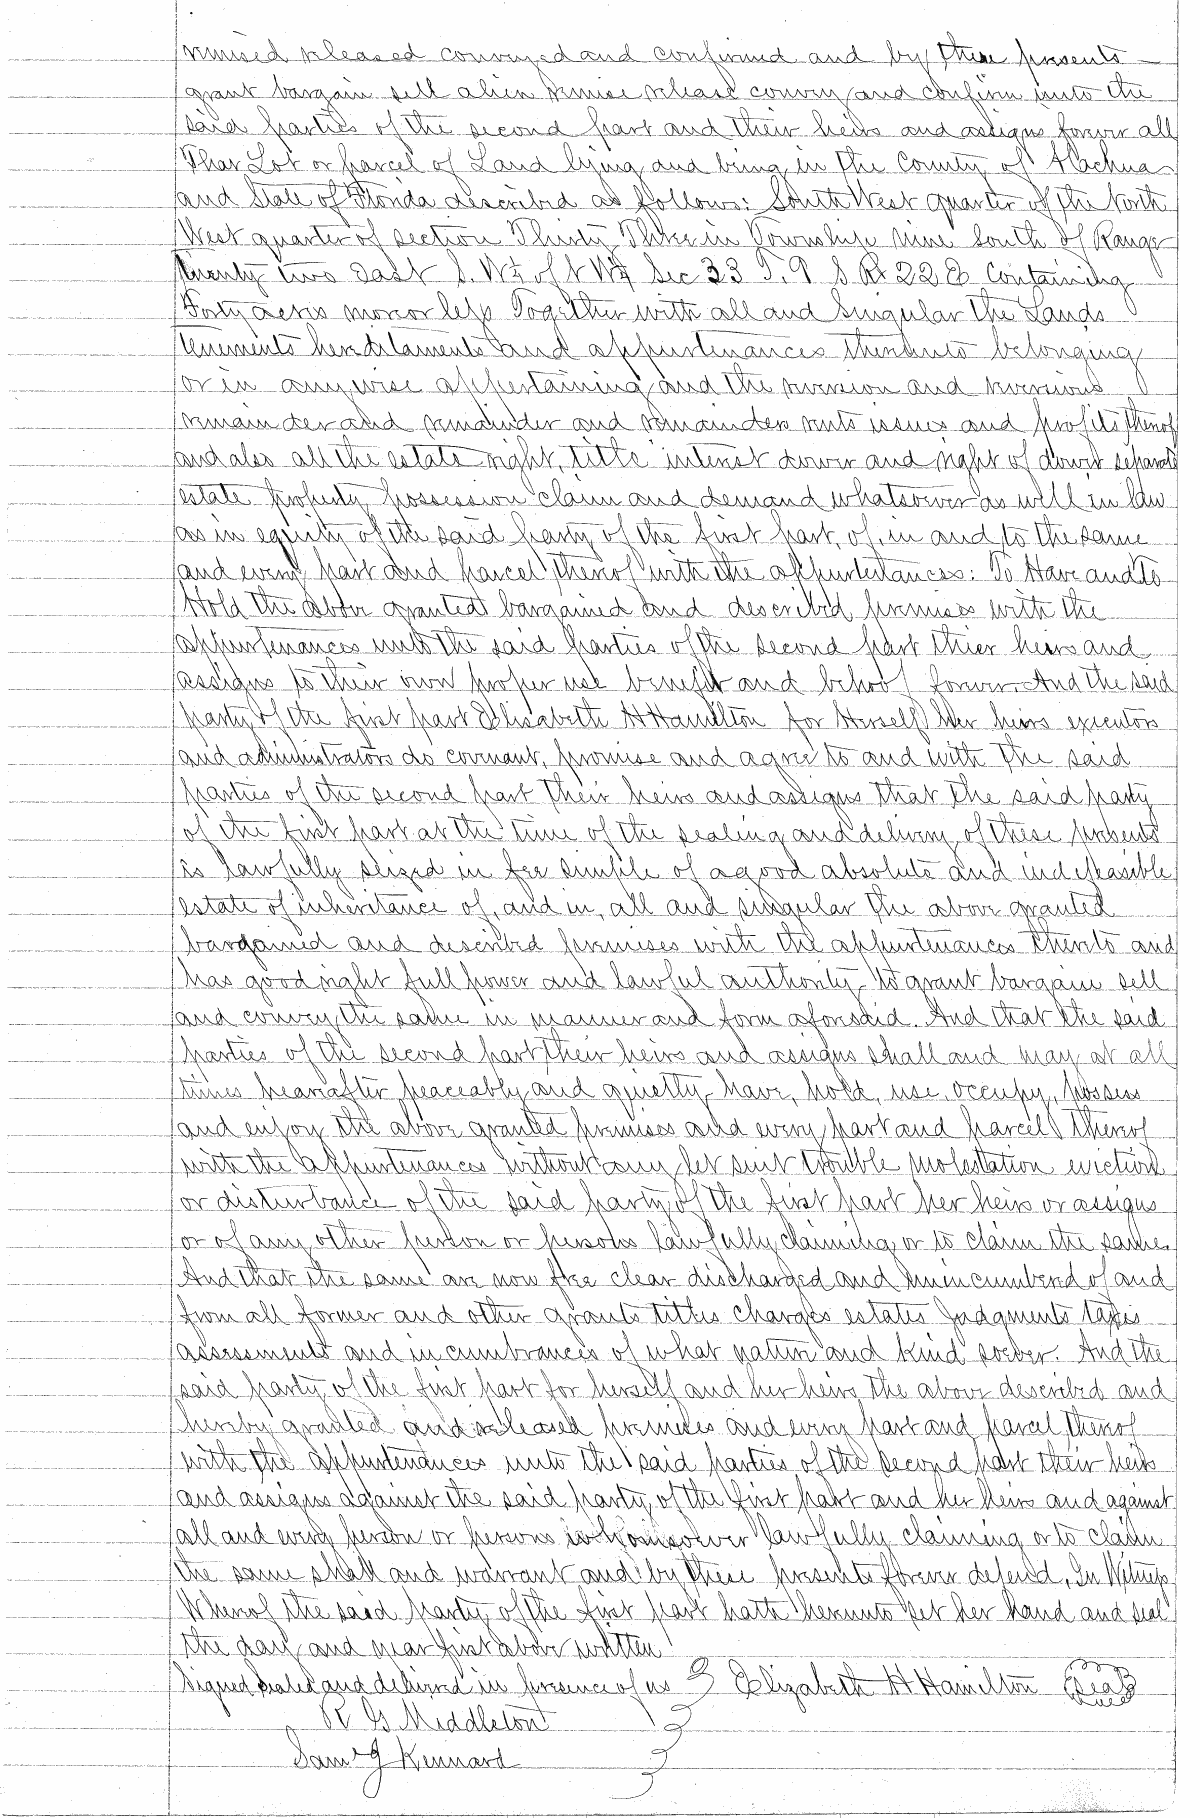 remised released conveyed and confirmed and by these presents —
grant bargain sell alien remise release convey and confirm unto the
said parties of the second part and their heirs and assigns forever all
That Lot or parcel of Land lying and being in the County of Alachua
and State of Florida described as follows: South West quarter of the North
West quarter of section Thirty Three in Township nine South of Range
twenty two East S. W¼ of N W¼ Sec 33 T. 9 S R 22 E Containing
Forty acres more or less Together with all and Singular the Lands
Tenements hereditaments and appurtenances thereunto belonging
or in anywise appertaining and the reversion and reversions
remainder and remainder and remainders rents issues and profits thereof
and also all the estate right, title interest dower and right of dower separate
estate property possession claim and demand whatsoever as well in law
as in equity of the said party of the first part, of, in and to the same
and every part and parcel thereof with the appurtenances: To Have and To
Hold the above granted bargained and described premises with the
appurtenances unto the said parties of the second part thier heirs and
assigns to their own proper use benefit and behoof forever. And the said
party of the first part Elisabeth H Hamilton for Herself her heirs executors
and administrators do covenant, promise and agree to and with the said
parties of the second part their heirs and assigns that the said party
of the first part at the time of the sealing and delivery of these presents
is lawfully seized in fee simple of a good absolute and indefeasible
estate of inheritance of, and in, all and singular the above granted
bargained and described premises with the appurtenances thereto and
has good right full power and lawful authority to grant bargain sell
and convey the same in manner and form aforesaid. And that the said
parties of the second part their heirs and assigns shall and may at all
times hearafter peaceably and quietly have, hold, use, occupy, possess
and enjoy the above granted premises and every part and parcel thereof
with the appurtenances without any let suit trouble molestation eviction
or disturbance of the said party of the first part her heirs or assigns
or of any other person or persons lawfully claiming or to claim the same.
And that the same are now free clear discharged and unincumbered of and
from all former and other grants titles charges estates Judgments taxes
assessments and incumbrances of what nature and kind soever. And the
said party of the first part for herself and her heirs the above described and
hereby granted and released premises and every part and parcel thereof
with the appurtenances unto the said parties of the second part their heirs
and assigns against the said party of the first part and her heirs and against
all and every person or persons whomsoever lawfully claiming or to claim
the same shall and warrant and by these presents forever defend, In Witness
Whereof the said party of the first part hath hereunto set her hand and seal
the day and year first above written
Signed Sealed and delivered in presence of us Elizabeth H Hamilton Seal
R G Middleton
Saml J Kennard